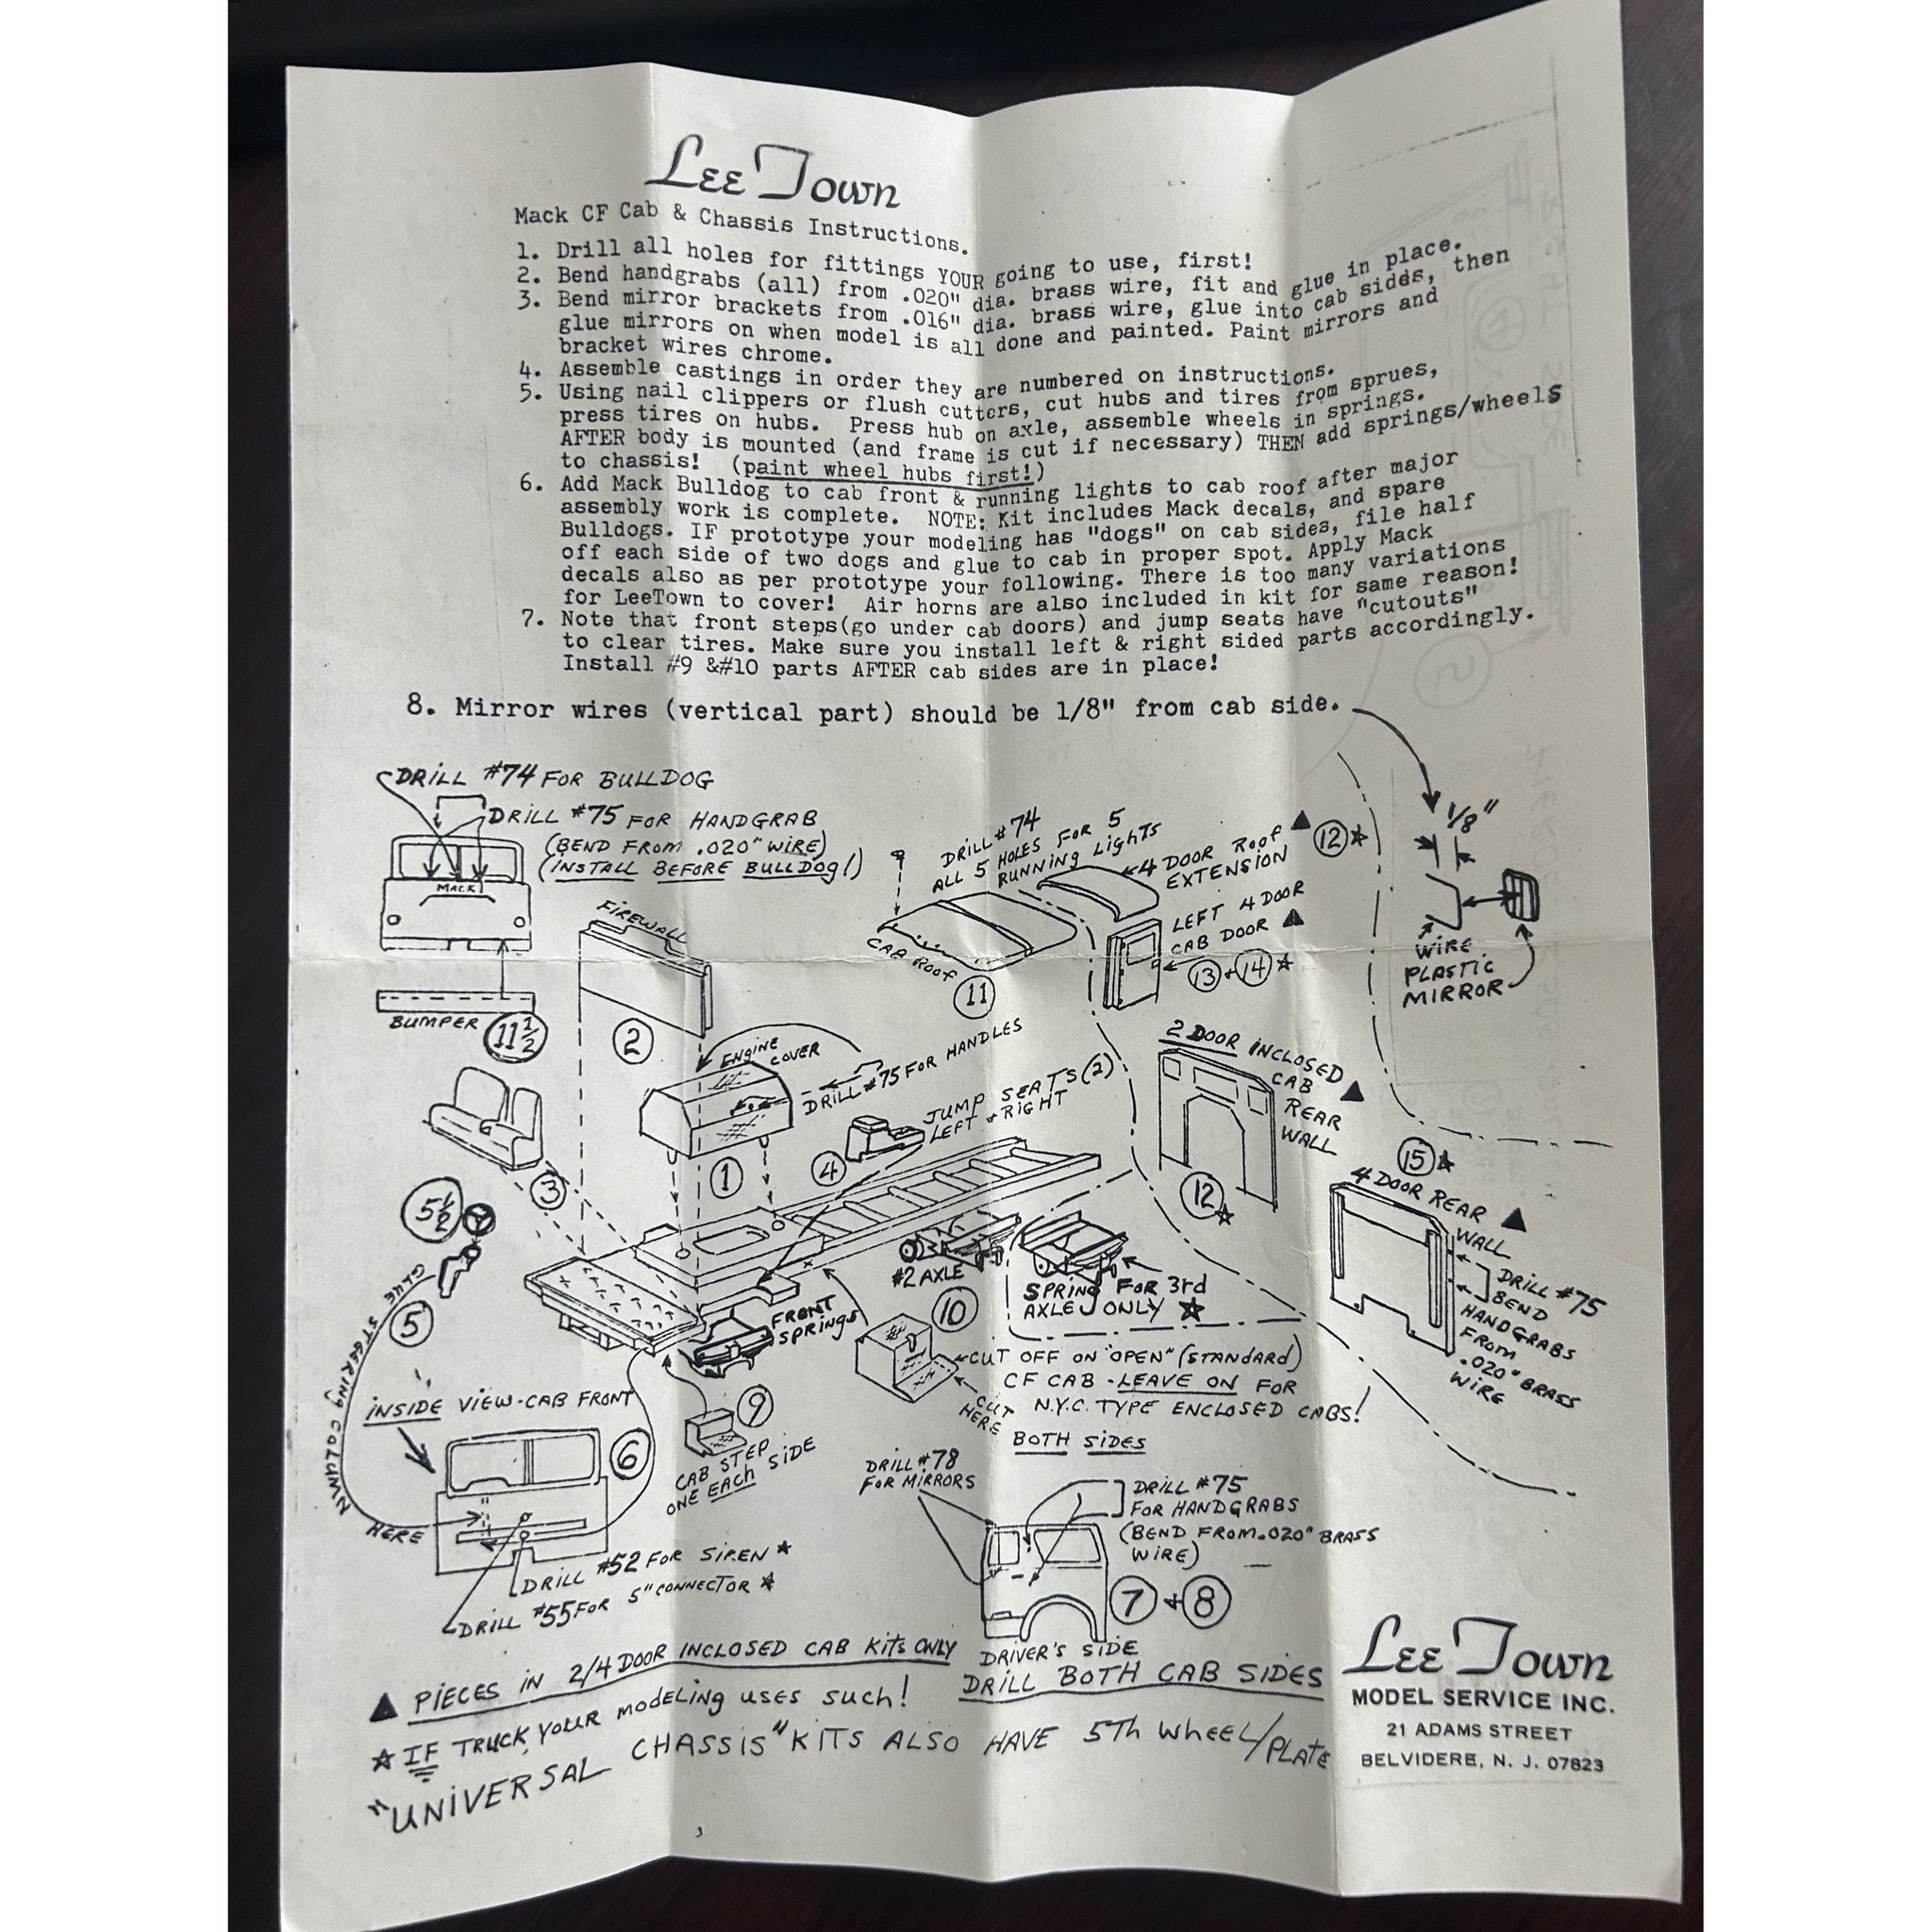 Lee Town
Mack CF Cab & Chassis Instructions.
1. Drill all holes for fittings YOUR going to use, first!
2. Bend handgrabs (all) from .020" dia. brass wire, fit and glue in place.
3. Bend mirror brackets from .016" dia. brass wire, glue into cab sides, then
glue mirrors on when model is all done and painted. Paint mirrors and
bracket wires chrome.
4. Assemble castings in order they are numbered on instructions.
5. Using nail clippers or flush cutters, cut hubs and tires from sprues,
press tires on hubs. Press hub on axle, assemble wheels in springs.
AFTER body is mounted (and frame is cut if necessary) THEN add springs/wheels
to chassis! (paint wheel hubs first!)
6. Add Mack Bulldog to cab front & running lights to cab roof after major
assembly work is complete. NOTE: Kit includes Mack decals, and spare
Bulldogs. IF prototype your modeling has "dogs" on cab sides, file half
off each side of two dogs and glue to cab in proper spot. Apply Mack
decals also as per prototype your following. There is too many variations
for LeeTown to cover! Air horns are also included in kit for same reason!
7. Note that front steps(go under cab doors) and jump seats have "cutouts"
to clear tires. Make sure you install left & right sided parts accordingly.
Install #9 &#10 parts AFTER cab sides are in place!
8. Mirror wires (vertical part) should be 1/8" from cab side.
DRILL #74 FOR BULLDOG
DRILL #75 FOR HANDGRAB
(BEND FROM .020" WIRE)
(INSTALL BEFORE BULLDOG!)
MACK
BUMPER
11 1/2
FIREWALL
2
DRILL #74
ALL 5 HOLES FOR 5
RUNNING LIGHTS
CAB ROOF
11
4 DOOR ROOF ▲
EXTENSION
12★
LEFT 4 DOOR
CAB DOOR ▲
13 + 14 ★
1/8"
WIRE
PLASTIC
MIRROR
ENGINE
COVER
DRILL #75 FOR HANDLES
1
3
JUMP SEATS (2)
LEFT + RIGHT
4
2 DOOR INCLOSED
CAB ▲
REAR
WALL
12★
15★
4 DOOR REAR ▲
WALL
DRILL #75
BEND
HANDGRABS
FROM
.020" BRASS
WIRE
5 1/2
5
GLUE STEERING COLUMN
HERE
#2 AXLE
SPRING FOR 3rd
AXLE ONLY ★
FRONT
SPRINGS
10
CUT OFF ON "OPEN" (STANDARD)
CF CAB - LEAVE ON FOR
N.Y.C. TYPE ENCLOSED CABS!
CUT
HERE
BOTH SIDES
INSIDE VIEW-CAB FRONT
6
9
CAB STEP
ONE EACH SIDE
DRILL #52 FOR SIREN ★
DRILL #55 FOR 5" CONNECTOR ★
DRILL #78
FOR MIRRORS
DRILL #75
FOR HANDGRABS
(BEND FROM .020" BRASS
WIRE)
7 + 8
DRIVER'S SIDE
DRILL BOTH CAB SIDES
▲ PIECES IN 2/4 DOOR INCLOSED CAB KITS ONLY
★ IF TRUCK YOUR modeling uses such!
"UNIVERSAL CHASSIS" KITS ALSO HAVE 5TH WHEEL/PLATE
Lee Town
MODEL SERVICE INC.
21 ADAMS STREET
BELVIDERE, N. J. 07823